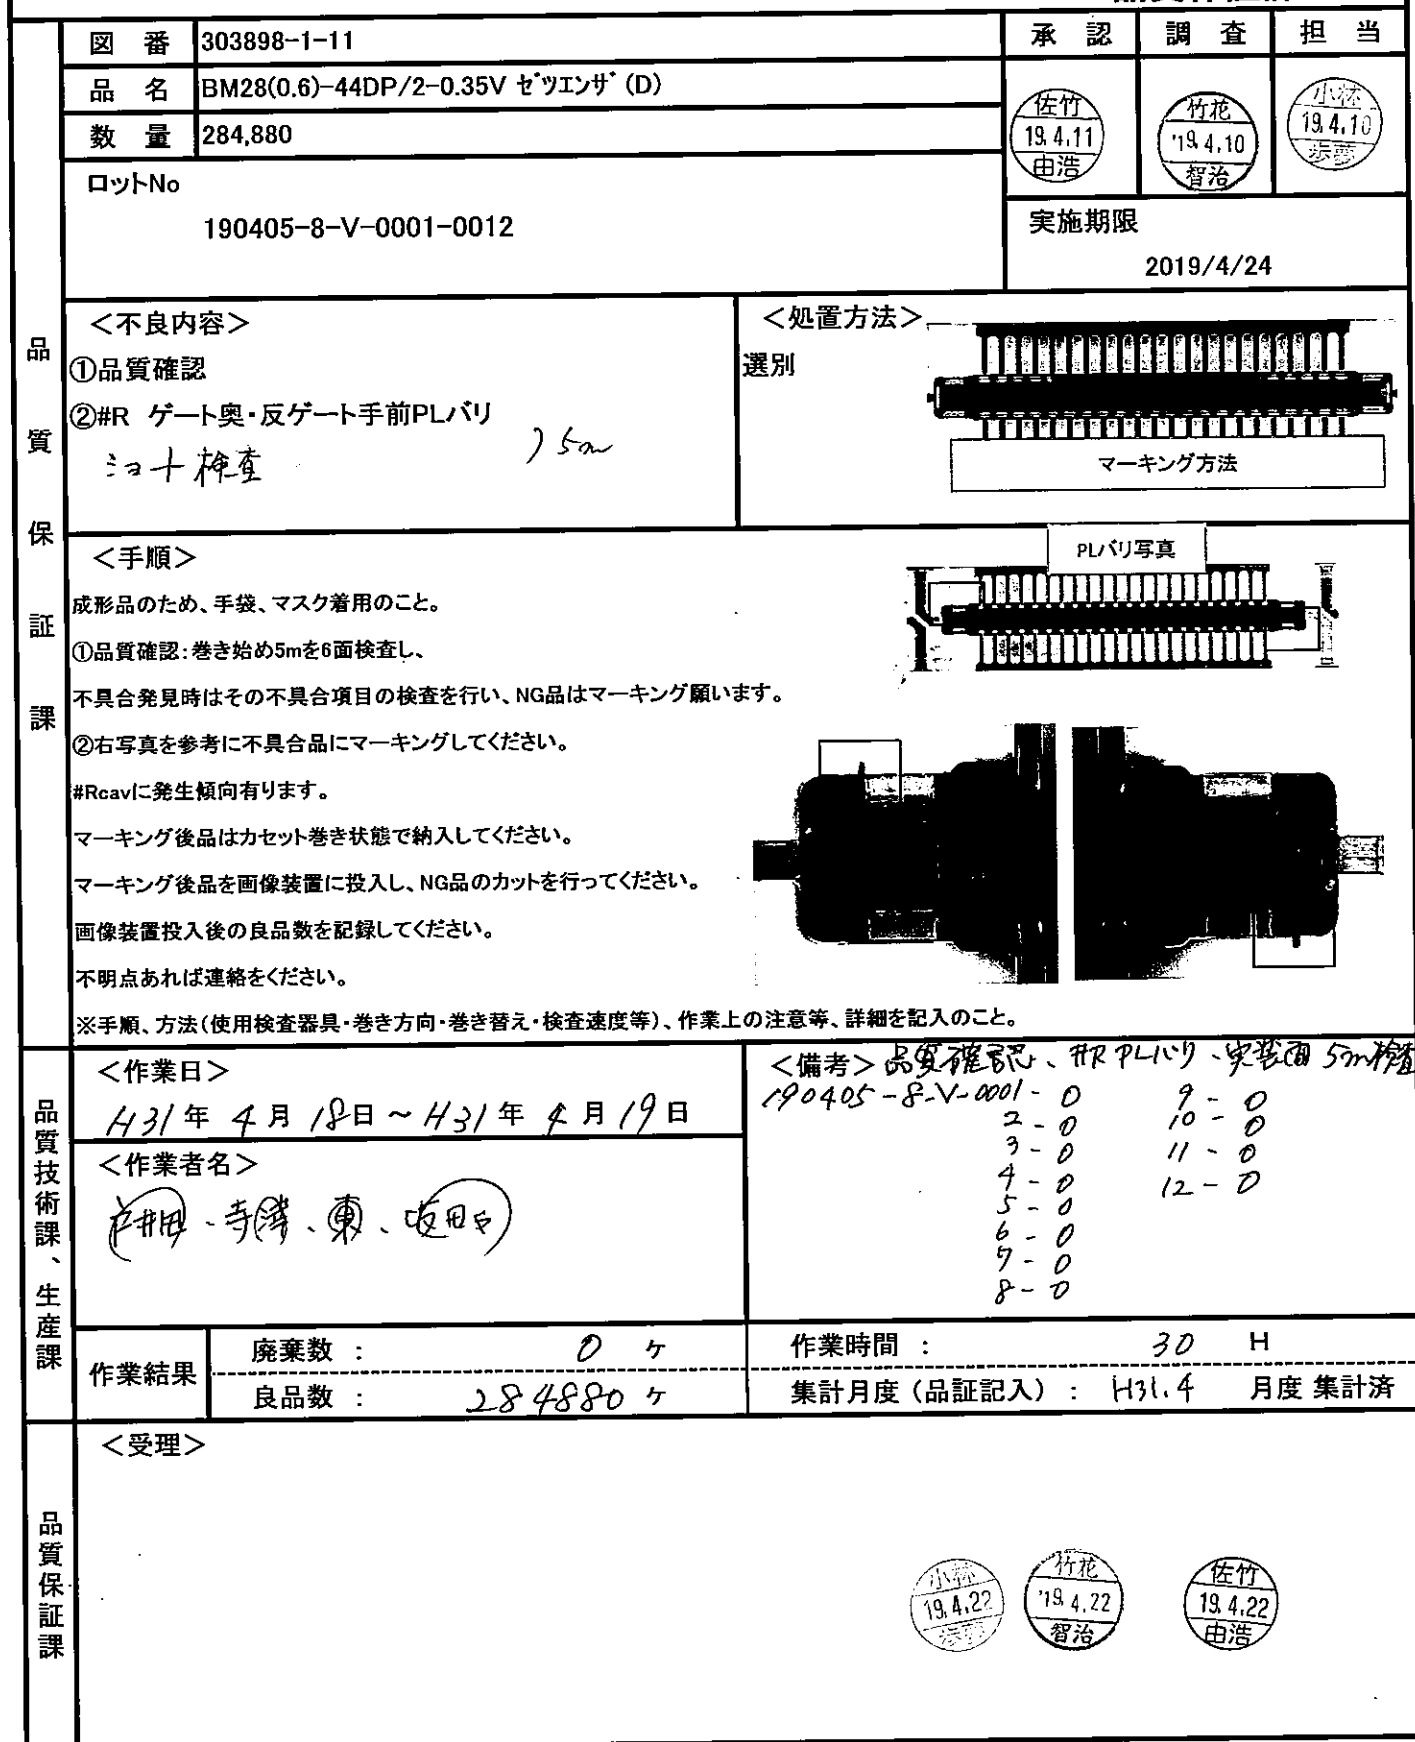 図 番 303898-1-11
品 名 BM28(0.6)-44DP/2-0.35V ゼツエンザ (D)
数 量 284,880
ロットNo
190405-8-V-0001-0012
承 認 調 査 担 当
佐竹 19.4.11 由浩
竹花 '19.4.10 智治
小林 19.4.10 歩夢
実施期限
2019/4/24
品質保証課
＜不良内容＞
①品質確認
②#R ゲート奥・反ゲート手前PLバリ
検査
) 5m
＜処置方法＞
選別
マーキング方法
＜手順＞
PLバリ写真
成形品のため、手袋、マスク着用のこと。
①品質確認：巻き始め5mを6面検査し、
不具合発見時はその不具合項目の検査を行い、NG品はマーキング願います。
②右写真を参考に不具合品にマーキングしてください。
#Rcavに発生傾向有ります。
マーキング後品はカセット巻き状態で納入してください。
マーキング後品を画像装置に投入し、NG品のカットを行ってください。
画像装置投入後の良品数を記録してください。
不明点あれば連絡をください。
※手順、方法（使用検査器具・巻き方向・巻き替え・検査速度等）、作業上の注意等、詳細を記入のこと。
品質技術課、生産課
＜作業日＞
H31年 4月 18日 ～ H31年 4月 19日
＜作業者名＞
＜備考＞ 品質確認、#R PLバリ、実装面 5m検査
190405-8-V-0001-0 9-0
2-0 10-0
3-0 11-0
4-0 12-0
5-0
6-0
7-0
8-0
作業結果
廃棄数 ： 0 ヶ
良品数 ： 284880 ヶ
作業時間 ： 30 H
集計月度（品証記入） ： H31.4 月度 集計済
品質保証課
＜受理＞
小林 19.4.22 歩夢
竹花 '19.4.22 智治
佐竹 19.4.22 由浩